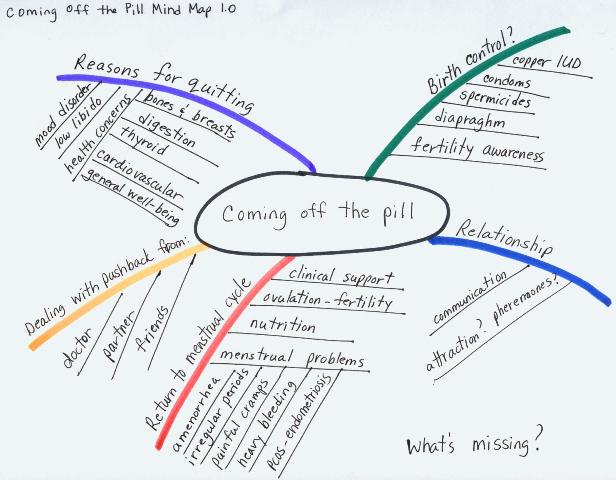 Coming Off the Pill Mind Map 1.0
Reasons for quitting
mood disorder
low libido
health concerns
bones & breasts
digestion
thyroid
cardiovascular
general well-being
Birth control?
copper IUD
condoms
spermicides
diapraghm
fertility awareness
Coming off the pill
Relationship
communication
attraction? pheremones?
Dealing with pushback from:
doctor
partner
friends
Return to menstrual cycle
clinical support
ovulation-fertility
nutrition
menstrual problems
amenorrhea
irregular periods
painful cramps
heavy bleeding
pcos-endometriosis
What's missing?